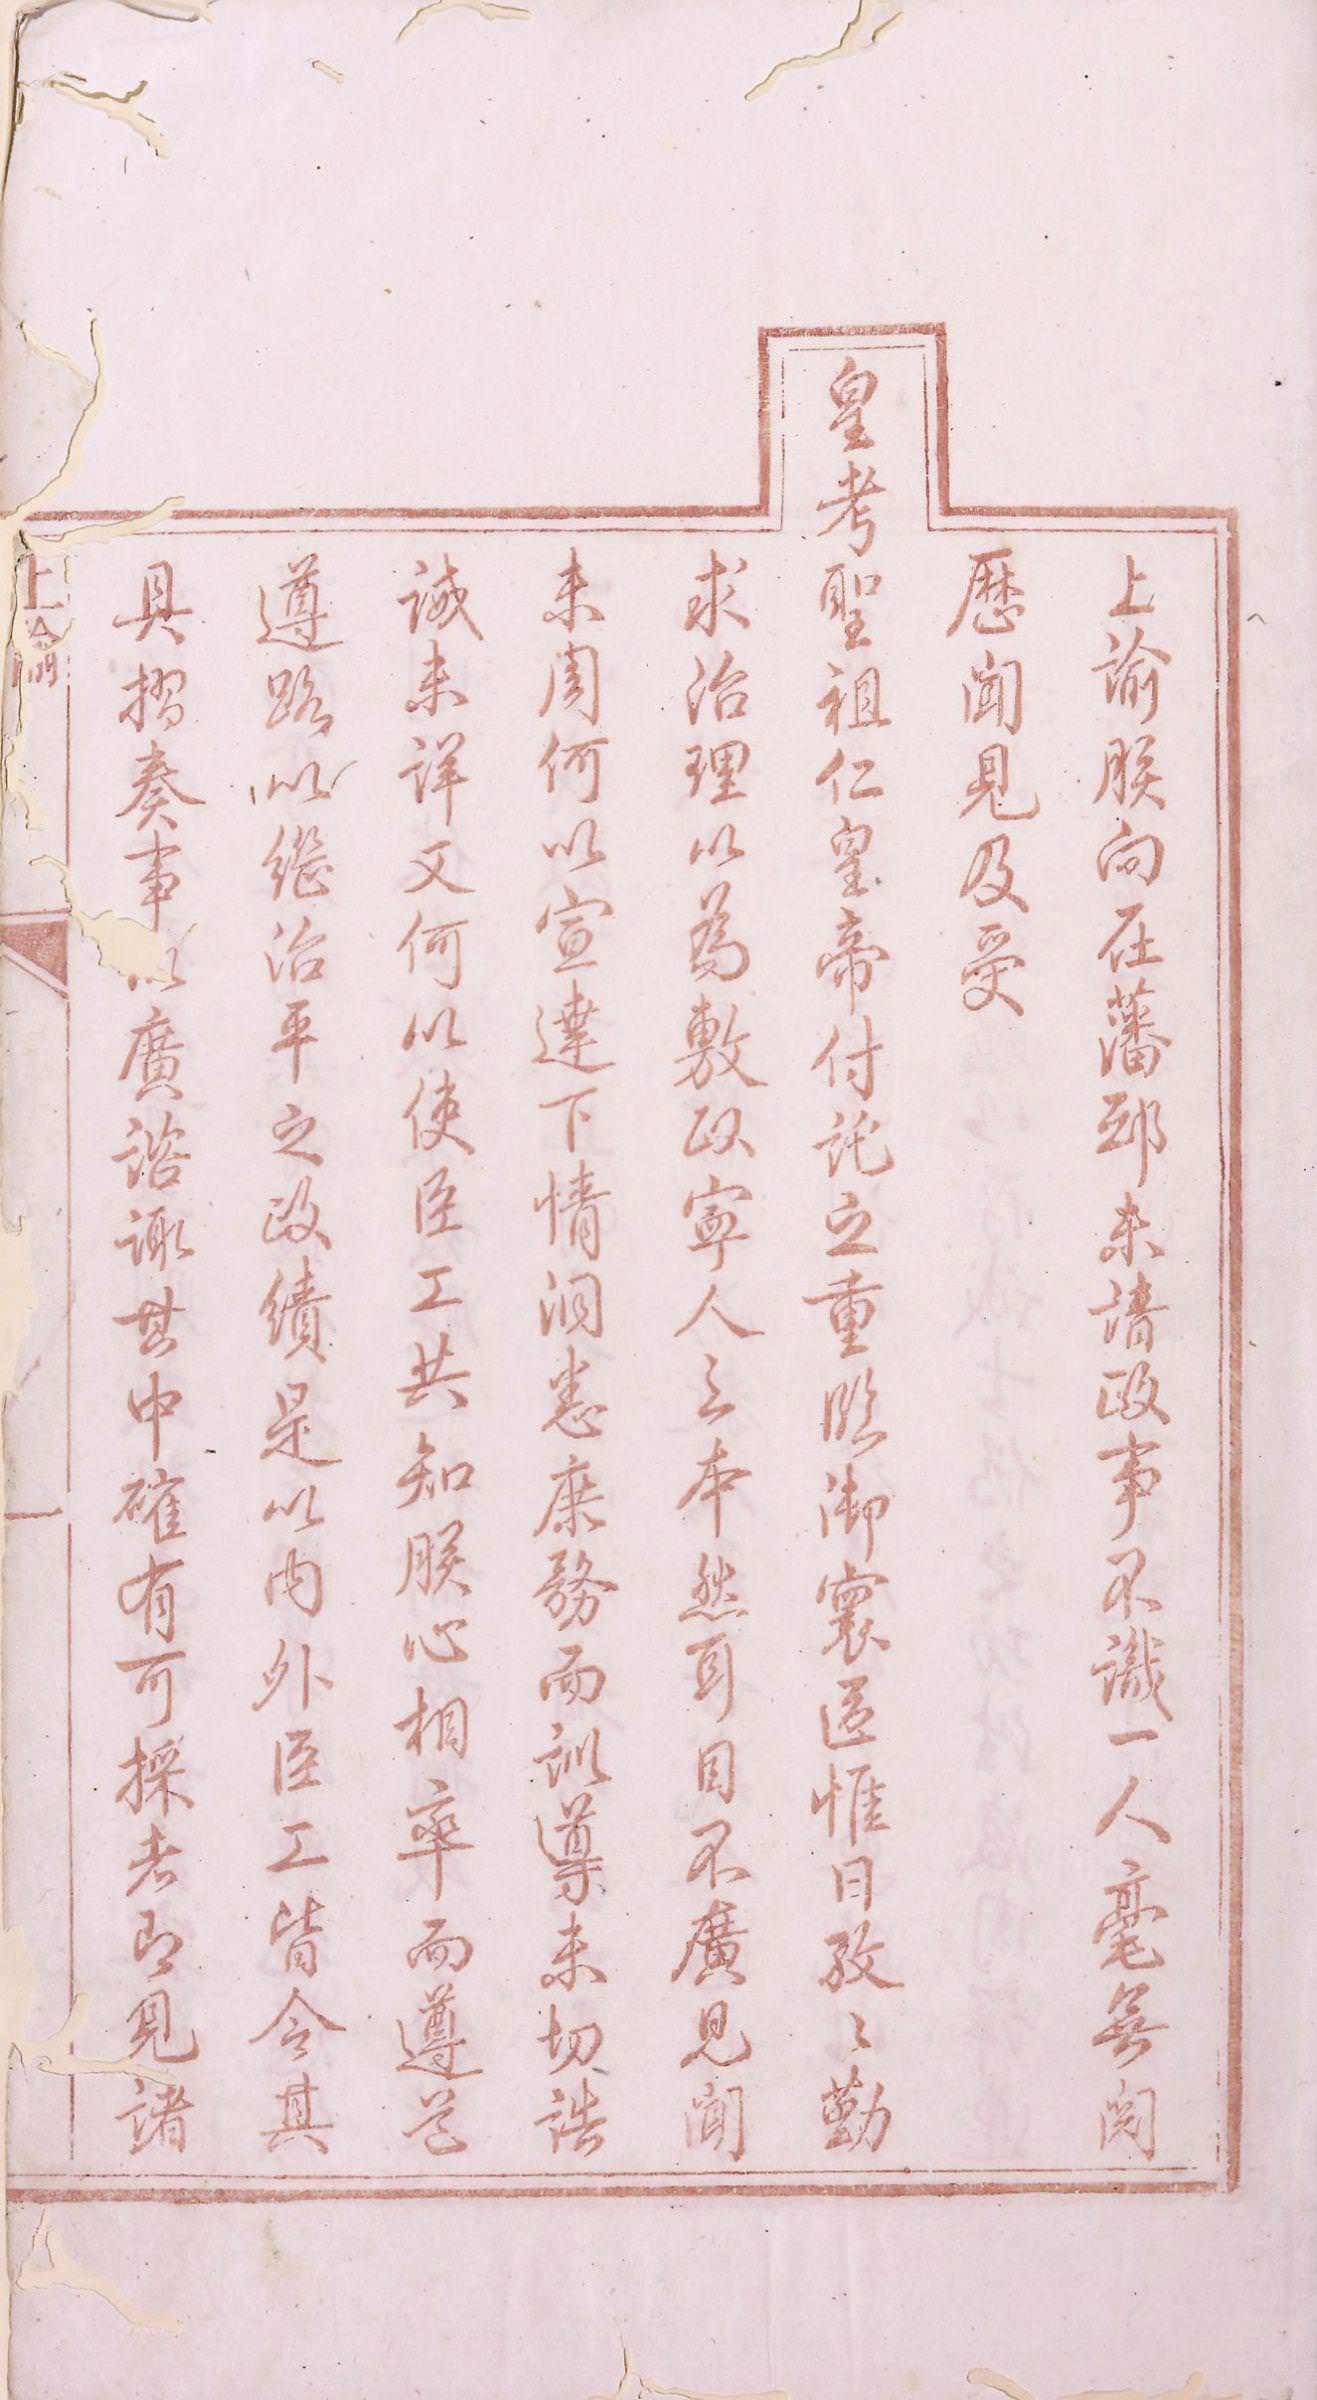 上諭朕向在藩邸未諳政事不識一人毫無閱
歷聞見及受
皇考聖祖仁皇帝付託之重臨御寰區惟日孜〻勤
求治理以為敷政寧人之本然耳目不廣見聞
未周何以宣達下情洞悉庶務而訓導未切誥
誡未詳又何以使臣工共知朕心相率而遵道
遵路以繼治平之政績是以內外臣工皆令其
具摺奏事以廣諮諏其中確有可採者即見諸
上諭
一